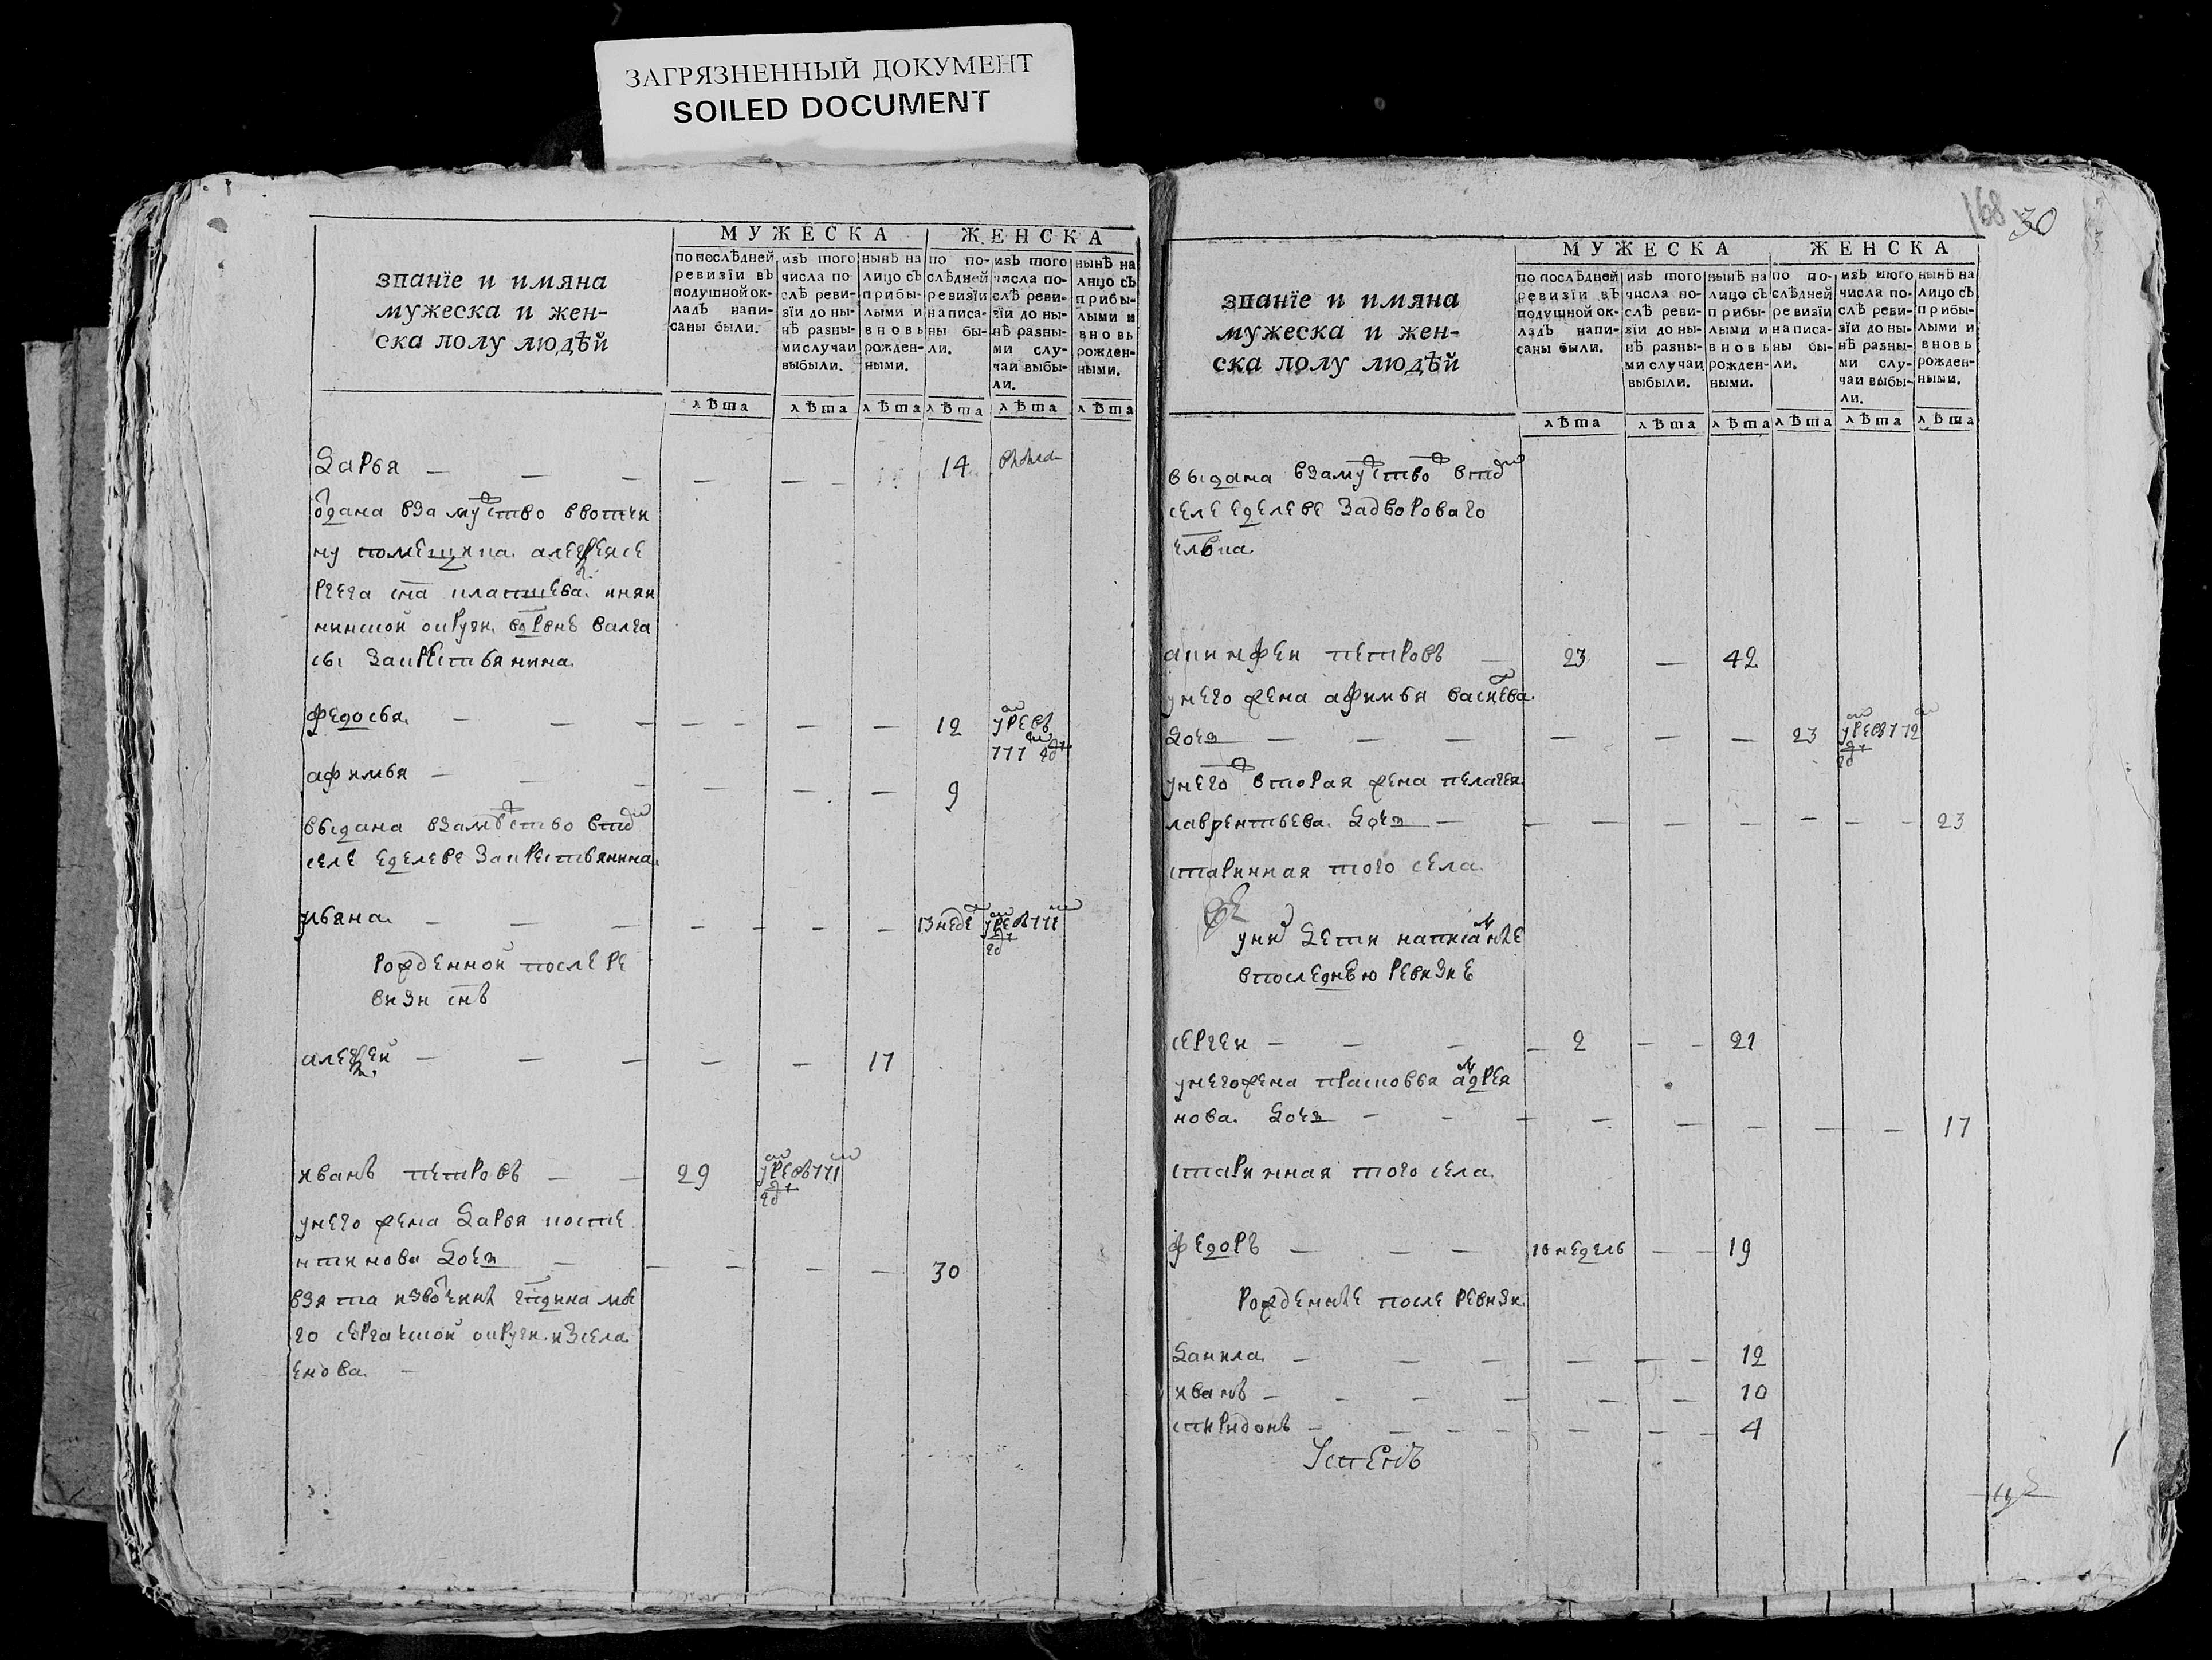 ЗАГРЯЗНЕННЫЙ ДОКУМЕНТ
SOILED DOCUMENT
званїе и имяна
мужеска и жен-
ска полу людѣй
МУЖЕСКА
ЖЕНСКА
по послѣдней ревизїи въ подушной ок-ладъ напи-саны были.
изъ того числа по-слѣ реви-зїи до ны-нѣ разны-ми случаи выбыли.
нынѣ на лицо съ прибы-лыми и вновь рожден-ными.
по по-слѣдней ревизїи написа-ны бы-ли.
изъ того числа по-слѣ реви-зїи до ны-нѣ разны-ми слу-чаи выбы-ли.
нынѣ на лицо съ прибы-лыми и вновь рожден-ными.
лѣта лѣта лѣта лѣта лѣта лѣта
Дарья 14
одана взамужство ввотчи
ну помещика алексея се
ргеева сна
нинской округи вдервне валга
сы закрестьянина
федосья 12
афимья 9
выдана взамужство втом
селе еделеве закрестьянина
ульяна 13 неде
рожденной после ре
визи снъ
алексей 17
иванъ петровъ 29
унего жена Дарья костен
нтинова Дочь 30
взята
го сергачской округи изсела
енова
168 30
званїе и имяна
мужеска и жен-
ска полу людѣй
МУЖЕСКА
ЖЕНСКА
по послѣдней ревизїи въ подушной ок-ладъ напи-саны были.
изъ того числа по-слѣ реви-зїи до ны-нѣ разны-ми случаи выбыли.
нынѣ на лицо съ прибы-лыми и вновь рожден-ными.
по по-слѣдней ревизїи написа-ны бы-ли.
изъ того числа по-слѣ реви-зїи до ны-нѣ разны-ми слу-чаи выбы-ли.
нынѣ на лицо съ прибы-лыми и вновь рожден-ными.
лѣта лѣта лѣта лѣта лѣта лѣта
выдана взамужство втом
селе еделеве задвороваго
члвка
акинфеи петровъ 23 42
унего жена афимья василева
Дочь 23
унего вторая жена пелагея
лаврентьева Дочь 23
старинная того села
уних Дети написаные
впоследнею ревизие
сергеи 2 21
унегожена прасковья андрея
нова Дочь 17
старинная того села
федоръ 10 недель 19
рожденые после ревизи
Данила 12
иванъ 10
спиридонъ 4